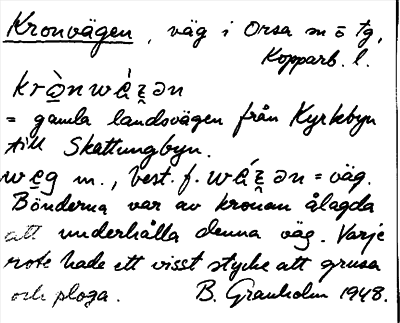 Kronvägen, väg i Orsa sn o tg,
Kopparb. l.
krɑ̀nwǽʐən
= gamla landsvägen från Kyrkbyn
till Skattungbyn.
weg m., best. f. wǽʐən = väg.
Bönderna var av kronan ålagda
att underhålla denna väg. Varje
rote hade ett visst stycke att grusa
och ploga. B. Granholm 1948.